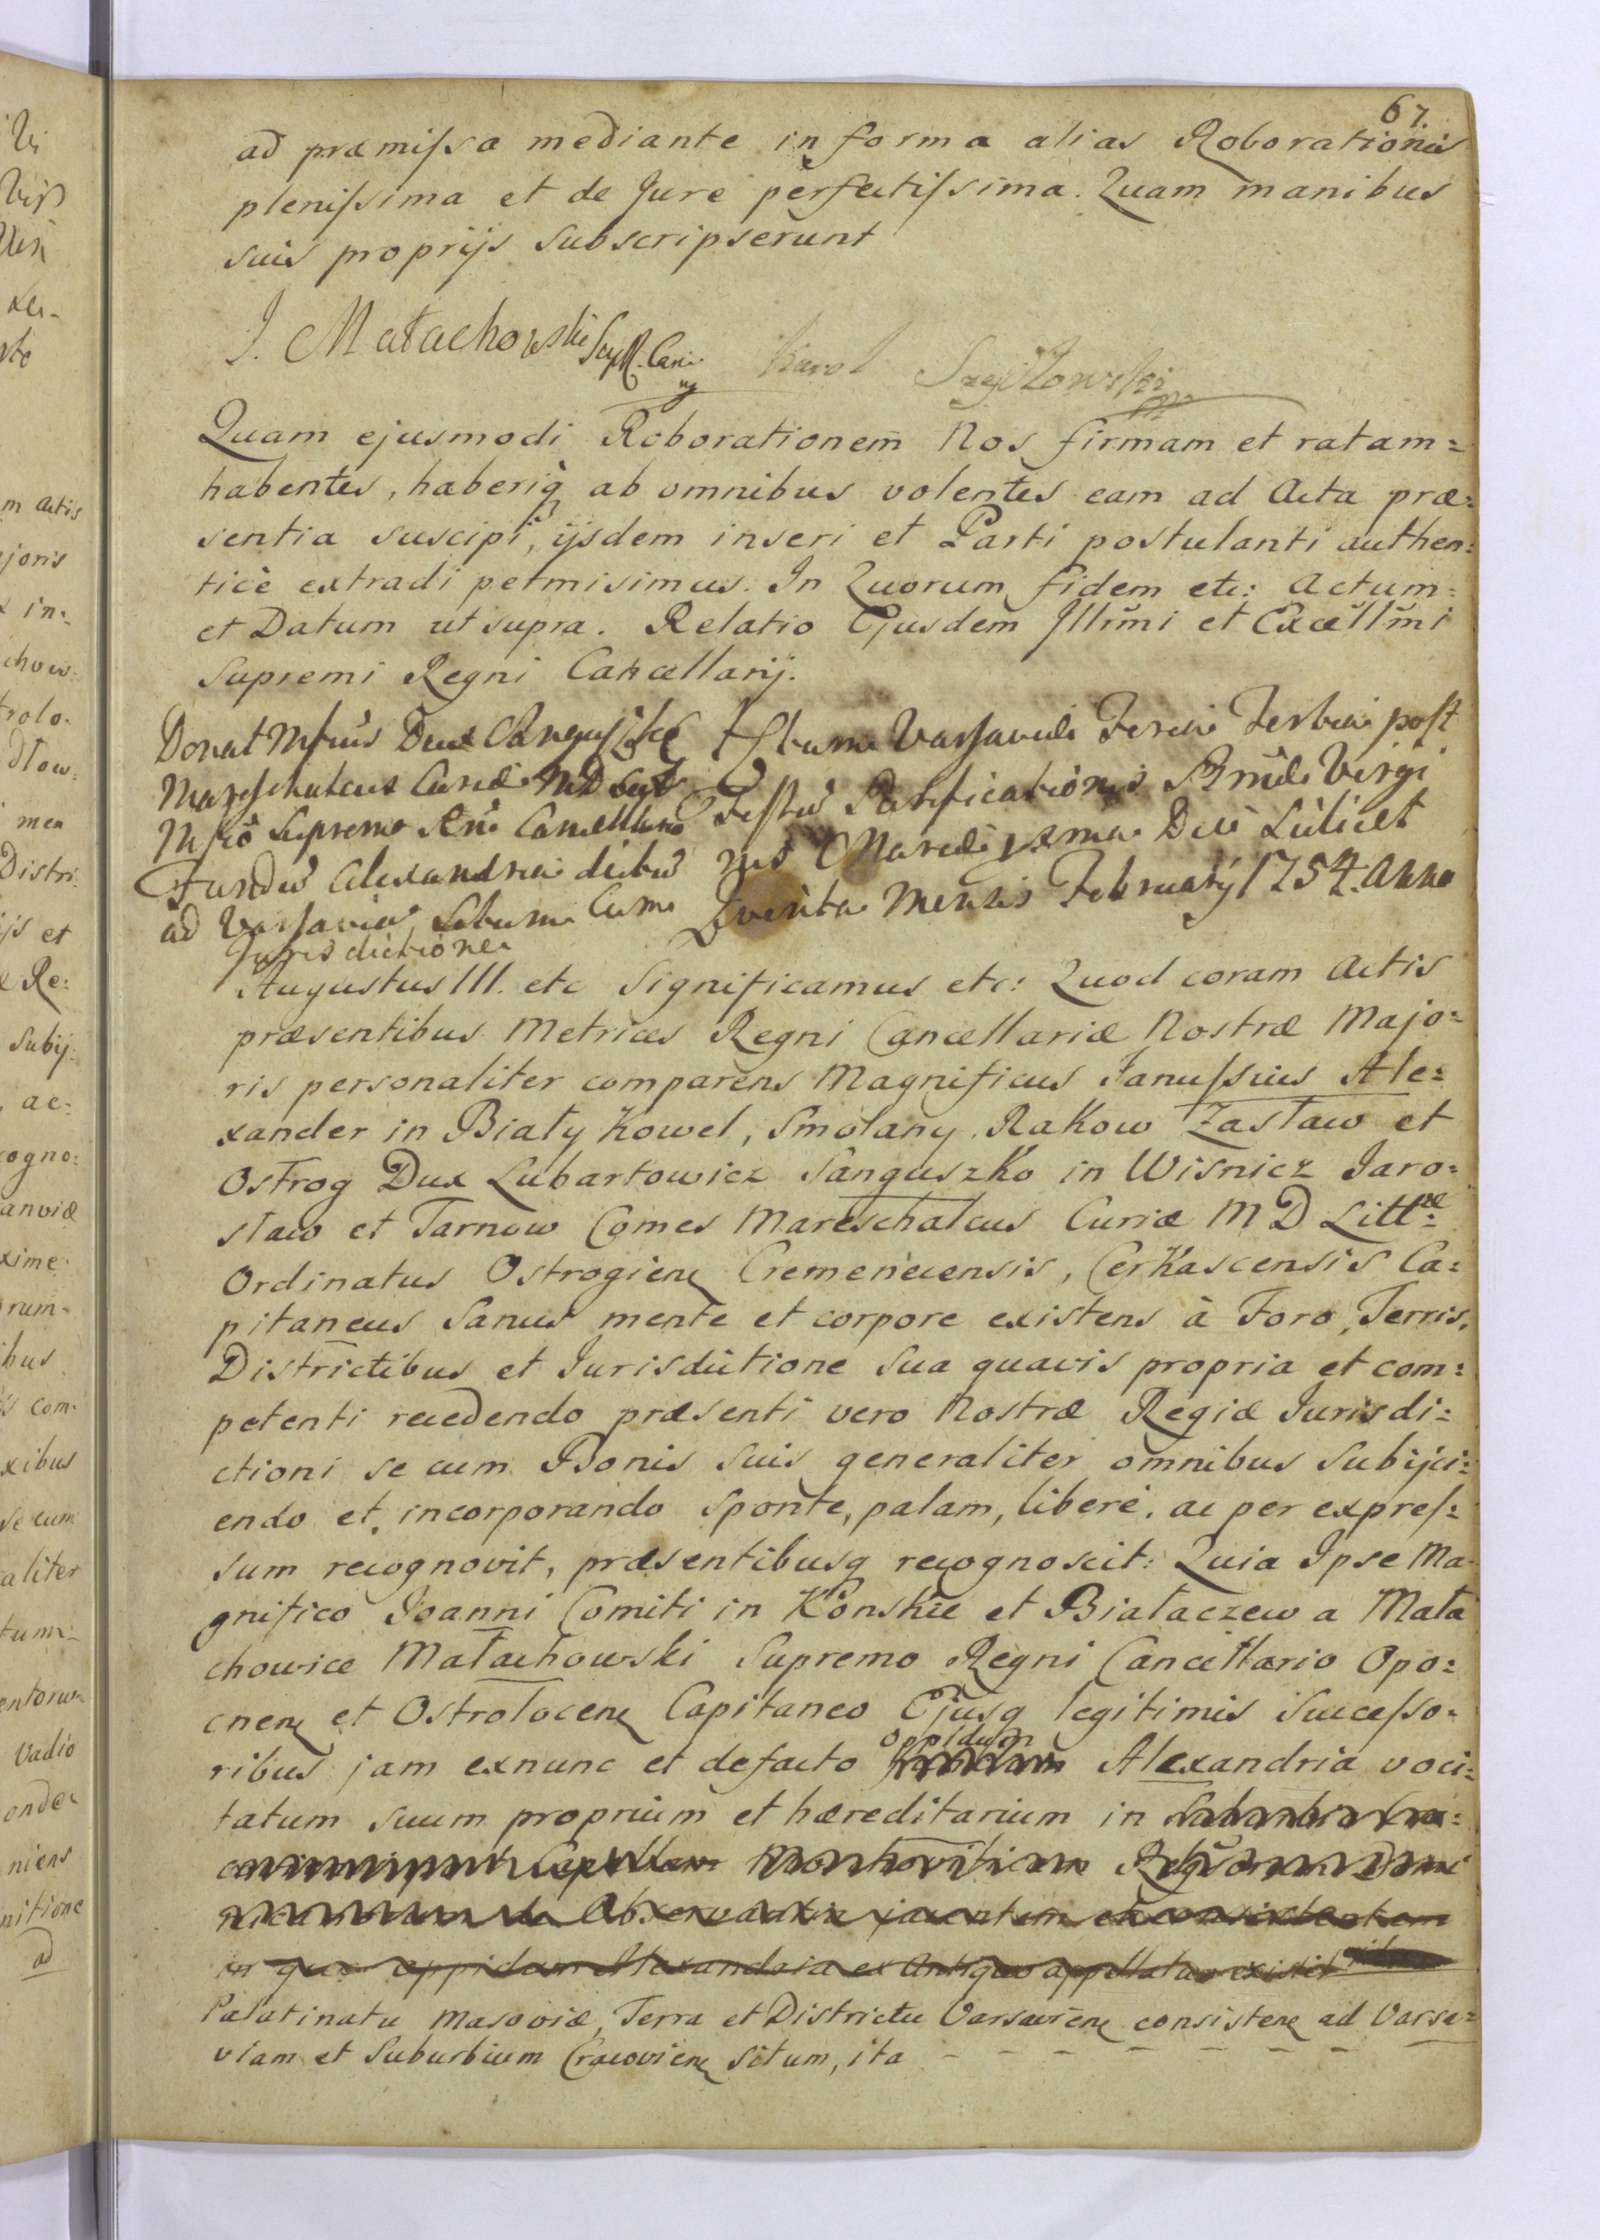 67.
ad præmissa mediante in forma alias Roborationis
plenissima et de Jure perfectissima. Quam manibus
suis proprijs subscripserunt
J. Małachowski
Karol Szydłowski
Quam ejusmodi Roborationem Nos firmam et ratam=
habentes, haberiq ab omnibus volentes eam ad Acta præ=
sentia suscipi, ijsdem inseri et Parti postulanti authen=
ticè extradi permisimus. In Quorum fidem etc: Actum=
et Datum ut supra. Relatio Ejusdem Illrmi et Excellmi
Supremi Regni Cancellarij.
Donat Mfcus Dux Sanguszko
Mareschalcus Curiæ MD
Mfco Supremo Cancellario
Fundus Alexandria dictus
ad Varsaviam Situm Cum
Jurisdictione
Actum Varsaviæ Feria Tertia post
Festum Purificationis Virgi
nis Mariæ Die Scilicet
Quinta Mensis February 1754. Anno
Augustus III. etc Significamus etc: Quod coram Actis
præsentibus Metrices Regni Cancellariæ Nostræ Majo=
ris personaliter comparens Magnificus Janussius Ale=
xander in Biały Kowel, Smolany, Rakow Zasław et
Ostrog Dux Lubartowicz Sanguszko in Wisnicz Jaro=
sław et Tarnow Comes Mareschalcus Curiæ M D Littæ
Ordinatus Ostrogien Cremenecensis, Cerkascensis Ca=
pitaneus Sanus mente et corpore existens à Foro, Terris,
Districtibus et Jurisdictione Sua quavis propria et com=
petenti recedendo præsenti vero Nostræ Regiæ Jurisdi=
ctioni se cum Bonis suis generaliter omnibus Subijci=
endo et incorporando sponte, palam, liberè, ac per expres=
sum recognovit, præsentibusq recognoscit: Quia Ipse Ma
gnifico Joanni Comiti in Konskie et Białaczew a Mała
chowice Małachowski Supremo Regni Cancellario Opo=
cnen et Ostrołocen Capitaneo Ejusq legitimis Successo=
ribus jam exnunc et defacto oppidum Alexandria voci=
tatum suum proprium et hæreditarium in
de Observantia jacentem et consistentem
in quo oppidum Alexandria ex Antiquo appellatur existit
Palatinatu Masoviæ, Terra et Districtu Varsavien consisten ad Varsa=
viam et Suburbium Cracovien Situm, ita